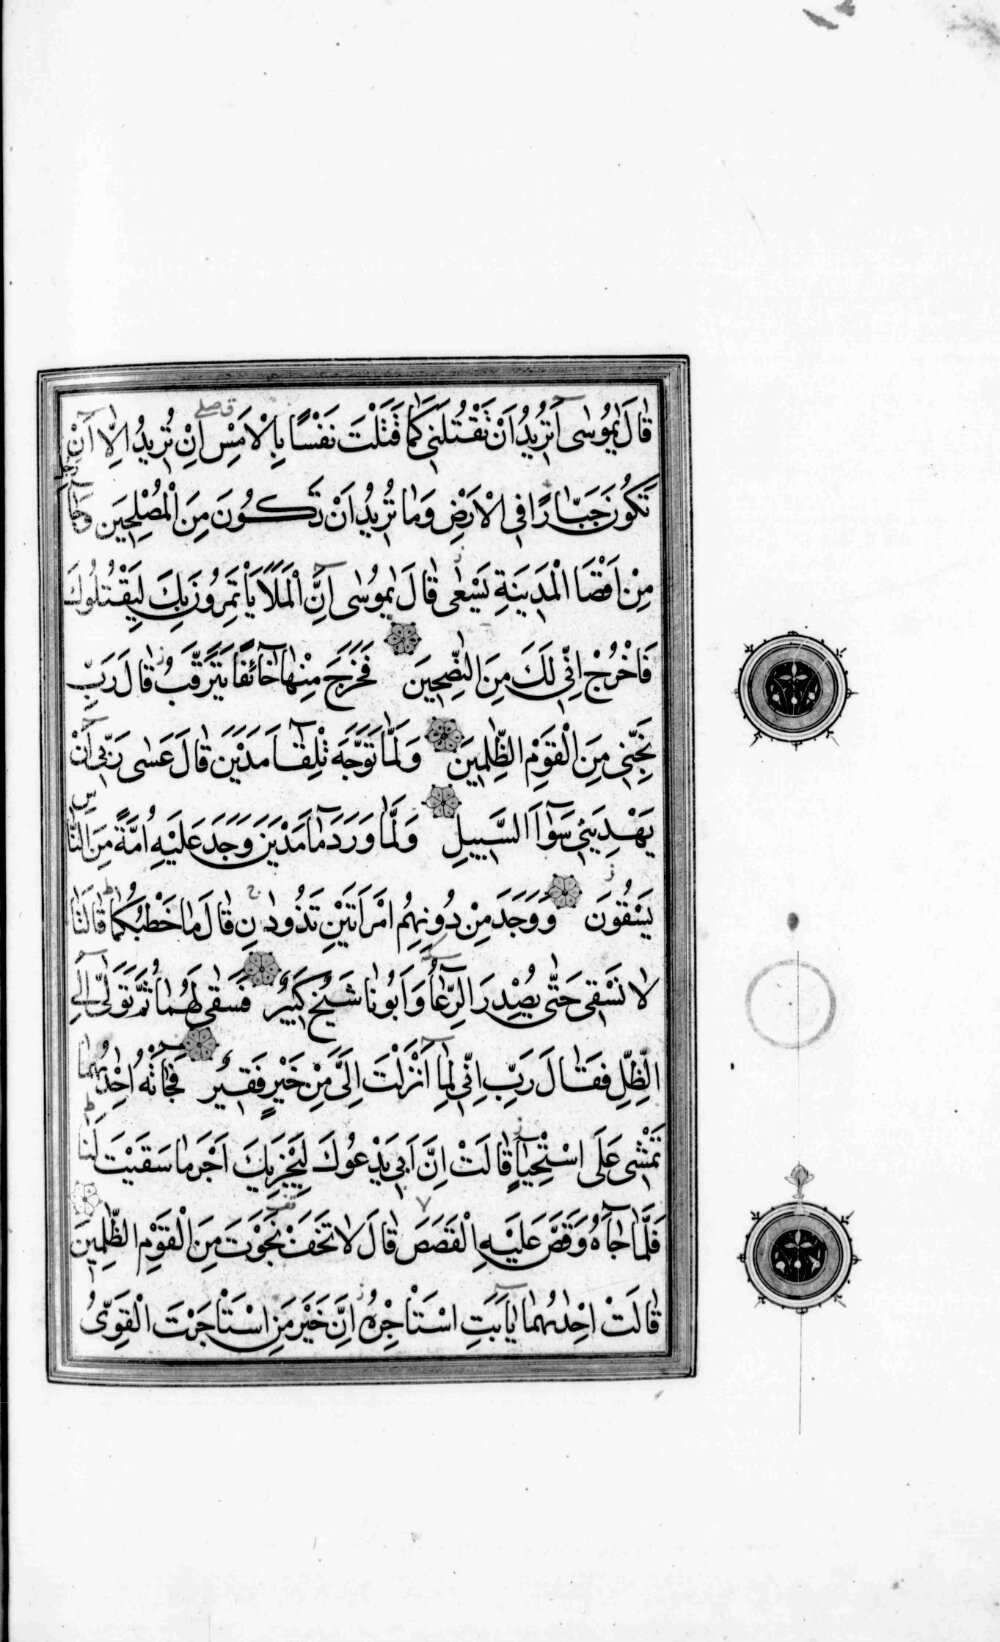 قَالَ يٰمُوسٰى اَتُرِيدُ اَنْ تَقْتُلَنِى كَمَا قَتَلْتَ نَفْسًا بِالْاَمْسِ اِنْ تُرِيدُ اِلَّا اَنْ
تَكُونَ جَبَّارًا فِى الْاَرْضِ وَمَا تُرِيدُ اَنْ تَكُونَ مِنَ الْمُصْلِحِينَ وَجَآءَ رَجُلٌ
مِنْ اَقْصَا الْمَدِينَةِ يَسْعٰى قَالَ يٰمُوسٰى اِنَّ الْمَلَاَ يَاْتَمِرُونَ بِكَ لِيَقْتُلُوكَ
فَاخْرُجْ اِنِّى لَكَ مِنَ النّٰصِحِينَ فَخَرَجَ مِنْهَا خَآئِفًا يَتَرَقَّبُ قَالَ رَبِّ
نَجِّنِى مِنَ الْقَوْمِ الظّٰلِمِينَ وَلَمَّا تَوَجَّهَ تِلْقَآ مَدْيَنَ قَالَ عَسٰى رَبِّى اَنْ
يَهْدِيَنِى سَوَآ السَّبِيلِ وَلَمَّا وَرَدَ مَآ مَدْيَنَ وَجَدَ عَلَيْهِ اُمَّةً مِنَ النَّاسِ
يَسْقُونَ وَوَجَدَ مِنْ دُونِهِمُ امْرَاَتَيْنِ تَذُودٰنِ قَالَ مَا خَطْبُكُمَا قَالَتَا
لَا نَسْقِى حَتّٰى يُصْدِرَ الرِّعَآ وَاَبُونَا شَيْخٌ كَبِيرٌ فَسَقٰى لَهُمَا ثُمَّ تَوَلّٰى اِلَى
الظِّلِّ فَقَالَ رَبِّ اِنِّى لِمَا اَنْزَلْتَ اِلَىَّ مِنْ خَيْرٍ فَقِيرٌ فَجَآتْهُ اِحْدٰىهُمَا
تَمْشِى عَلَى اسْتِحْيَآ قَالَتْ اِنَّ اَبِى يَدْعُوكَ لِيَجْزِيَكَ اَجْرَ مَا سَقَيْتَ لَنَا
فَلَمَّا جَآهُ وَقَصَّ عَلَيْهِ الْقَصَصَ قَالَ لَا تَخَفْ نَجَوْتَ مِنَ الْقَوْمِ الظّٰلِمِينَ
قَالَتْ اِحْدٰىهُمَا يٰآ اَبَتِ اسْتَاْجِرْهُ اِنَّ خَيْرَ مَنِ اسْتَاْجَرْتَ الْقَوِىُّ